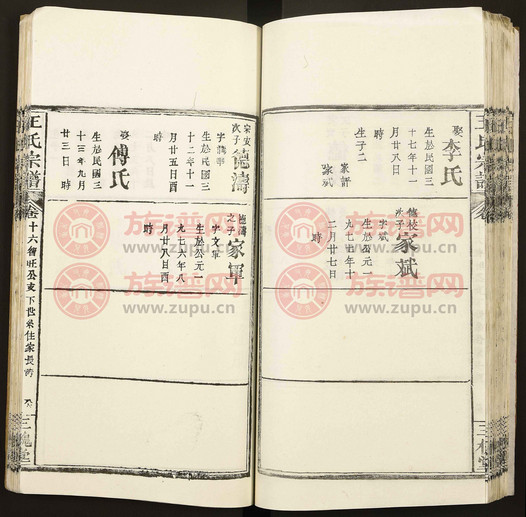 娶李氏
生於民國三
十七年十一
月廿八日
時
生子二
家斌
德校
次子家斌
字斌
生於公元一
九七七年十
二月廿七日
時
宗安
次子德濤
生於民國三
十二年十一
月廿五日酉
時
娶傅氏
生於民國三
十三年九月
廿三日時
德濤
之子家軍
字文軍
生於公元一
九七六年八
月廿八日酉
時
王氏宗譜
卷十六
三槐堂
族谱网
www.zupu.cn
族谱网
www.zupu.cn
族谱网
www.zupu.cn
族谱网
www.zupu.cn